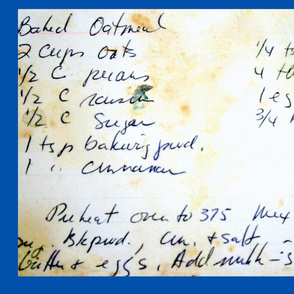 Baked Oatmeal
2 Cups oats 1/4 ts
1/2 C pecans 4 tb
1/2 C raisin 1 eg
1/2 C Sugar 3/4
1 tsp baking pwd.
1 " Cinnamon
Preheat oven to 375 Mix
Bk pwd., Cin. + salt -
butter & eggs, Add milk - S